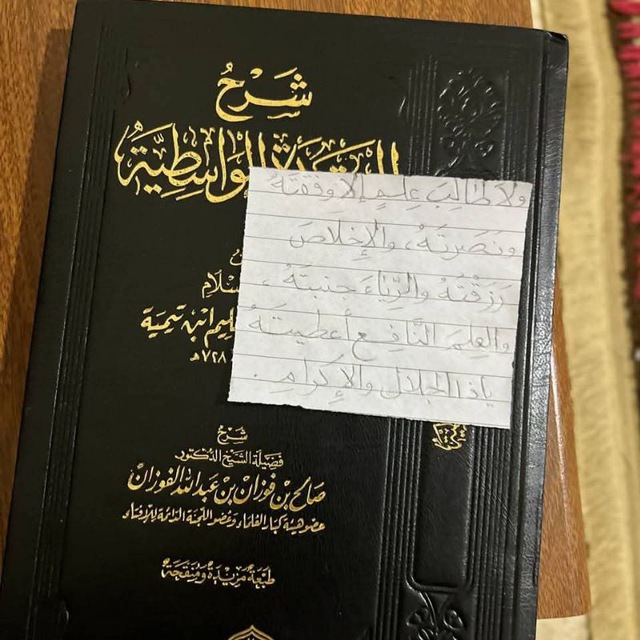 شَرْحُ
الواسِطِيَّة
ولا طَالِبَ عِلمٍ إلا وفقتَهُ
ونصَرتَهُ، والإخلاصَ
رزقتَهُ والرِّياءَ جنبتهُ،
والعِلمَ النَّافِعَ أعطيتَهُ
ياذا الجلال والإكرام.
ابن تيمية
٧٢٨هـ
شرح
فضيلة الشيخ الدكتور
صالح بن فوزان بن عبد الله الفوزان
عضو هيئة كبار العلماء وعضو اللجنة الدائمة للإفتاء
طبعة مزيدة ومنقحة